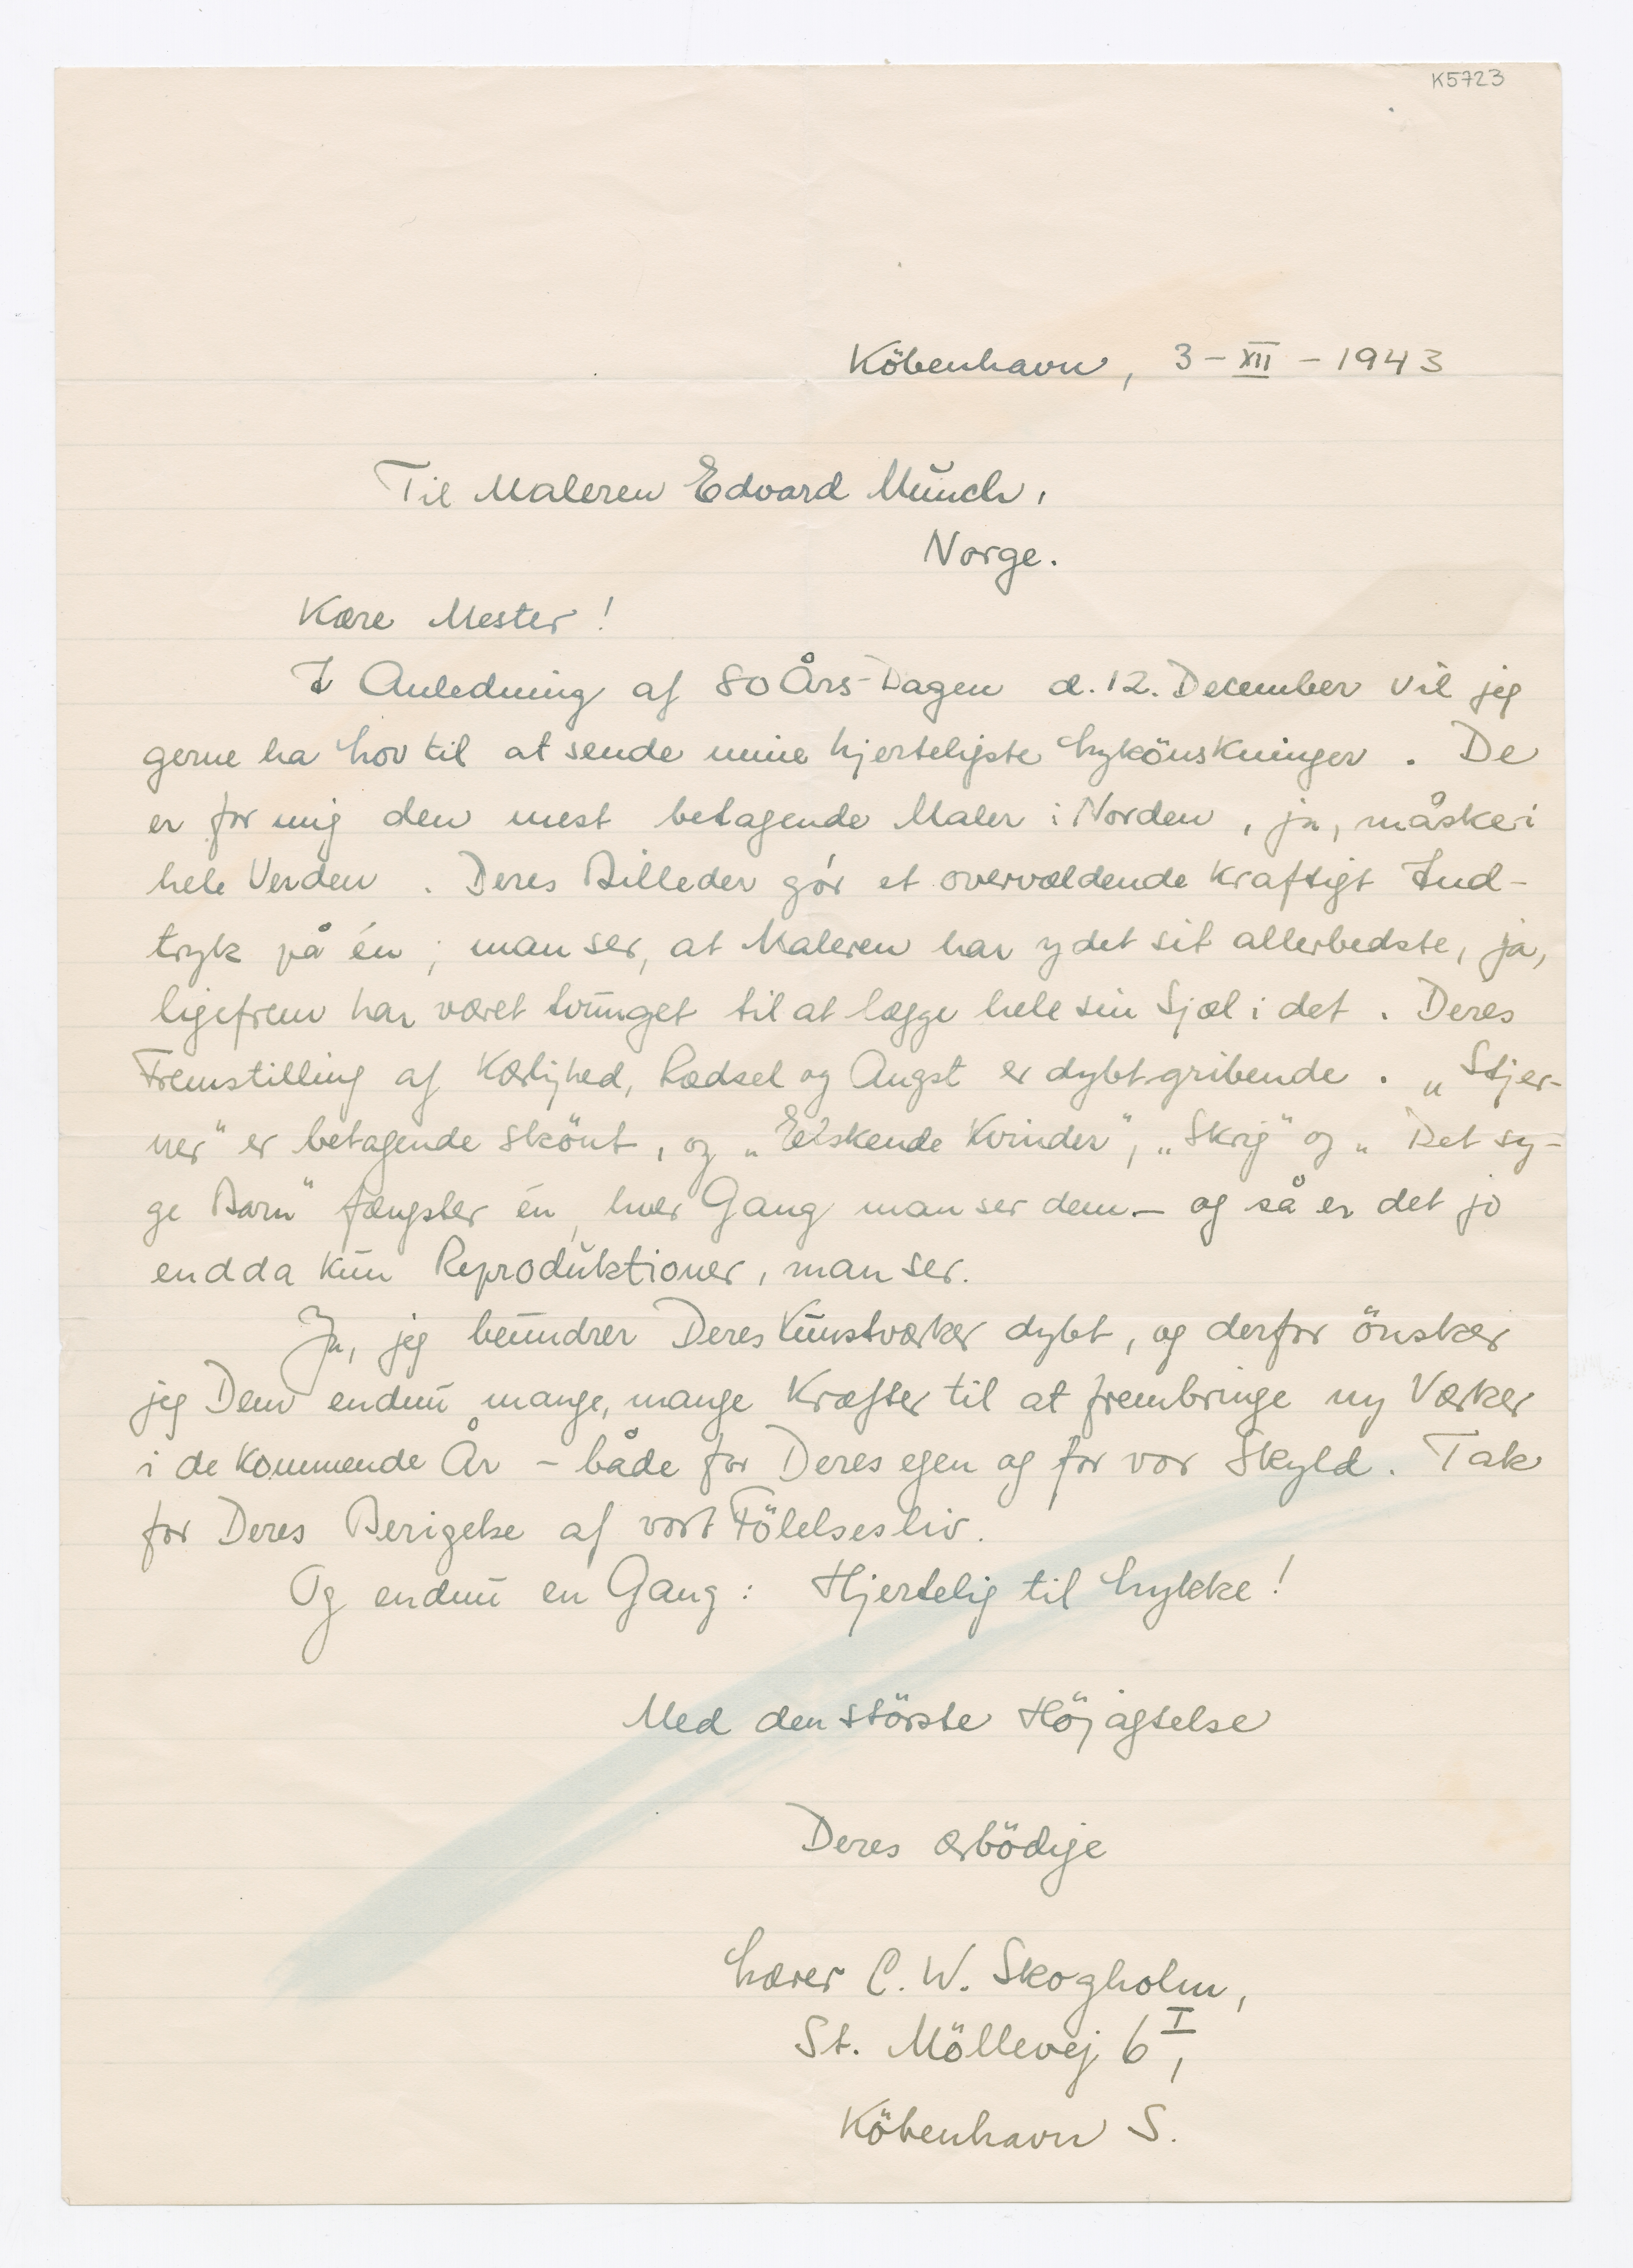 K5723
Köbenhavn, 3 – XII – 1943
Til Maleren Edvard Munch,
Norge.
Kære Mester!
I Anledning af 80 Års-Dagen d. 12. December vil jeg
gerne ha Lov til at sende mine hjerteligste Lykönskninger. De
er for mig den mest betagende Maler i Norden, ja, måske i
hele Verden. Deres Billeder gör et overvældende kraftigt Ind-
tryk på én; man ser, at Maleren har ydet sit allerbedste, ja,
ligefrem har været tvunget til at lægge hele sin Sjæl i det. Deres
Fremstilling af Kærlighed, Rædsel og Angst er dybt gribende. „Stjer-
ner“ er betagende skönt, og „Elskende Kvinder“, „Skrig“ og „Det sy-
ge Barn“ fængsler én, hver Gang man ser dem – og så er det jo
endda kun Reproduktioner, man ser.
Ja, jeg beundrer Deres Kunstværker dybt, og derfor önsker
jeg Dem endnu mange, mange Kræfter til at frembringe ny Værker
i de kommende År – både for Deres egen og for vor Skyld. Tak
for Deres Berigelse af vort Fölelsesliv.
Og endnu en Gang: Hjertelig til Lykke!
Med den störste Höjagtelse
Deres ærbödige
Lærer C. W. Skogholm,
St. Möllevej 6 I,
Köbenhavn S.